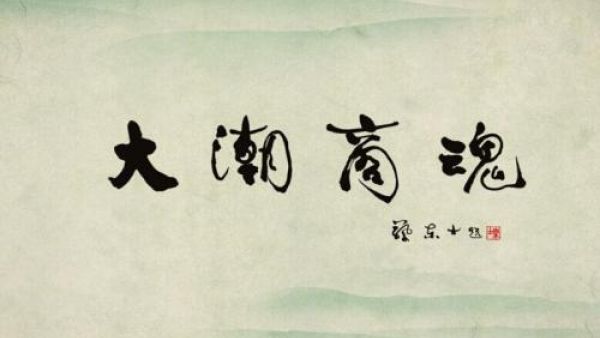 大潮商魂